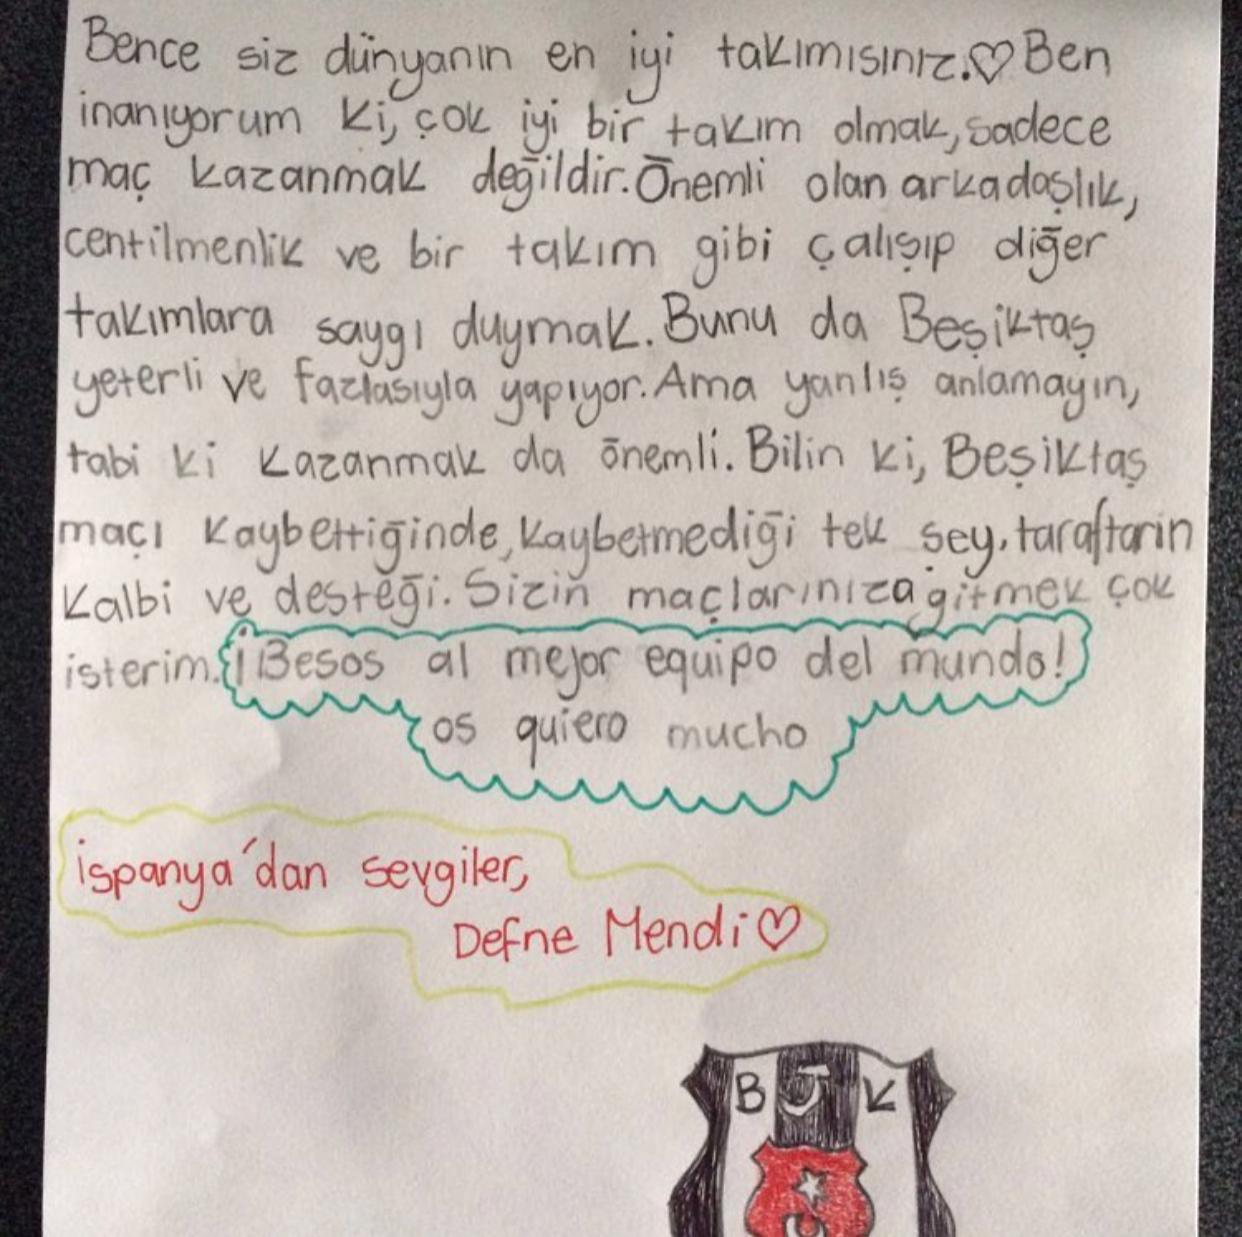 Bence siz dünyanın en iyi takımısınız.♡Ben
inanıyorum ki, çok iyi bir takım olmak, sadece
maç kazanmak değildir. Önemli olan arkadaşlık,
centilmenlik ve bir takım gibi çalışıp diğer
takımlara saygı duymak. Bunu da Beşiktaş
yeterli ve fazlasıyla yapıyor. Ama yanlış anlamayın,
tabi ki kazanmak da önemli. Bilin ki, Beşiktaş
maçı kaybettiğinde, kaybetmediği tek şey, taraftarin
kalbi ve desteği. Sizin maçlarınıza gitmek çok
isterim. ¡Besos al mejor equipo del mundo!
os quiero mucho
İspanya'dan sevgiler,
Defne Mendi♡
B J K